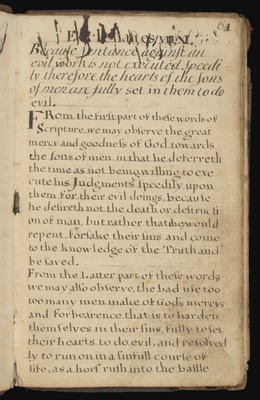 Because Sentance against an
evil work is not executed Speedi
ly therefore the hearts of the sons
of men are fully set in them to do
evil.
FRom the first part of these words of
Scripture, we may observe the great
mercy and goodness of God towards
the sons of men, in that he deferreth
the time as not being willing to exe
cute his Judgments speedily upon
them for their evil doings, because
he desireth not the death or destructi
on of man, but rather that he would
repent, forsake their sins and come
to the knowledge of the Truth and
be saved.
From the Latter part of these words
we may also observe, the bad use too
too many men make of God's mercys
and forbearence that is to harden
themselves in their sins, fully to set
their hearts to do evil, and resolved
ly to run on in a sinfull course of
life, as a hors rush into the battle